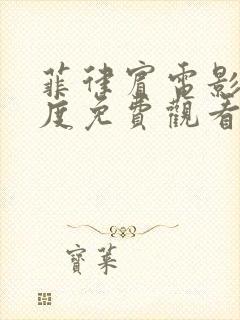 菲律賓電影
度免費觀看
寶萊